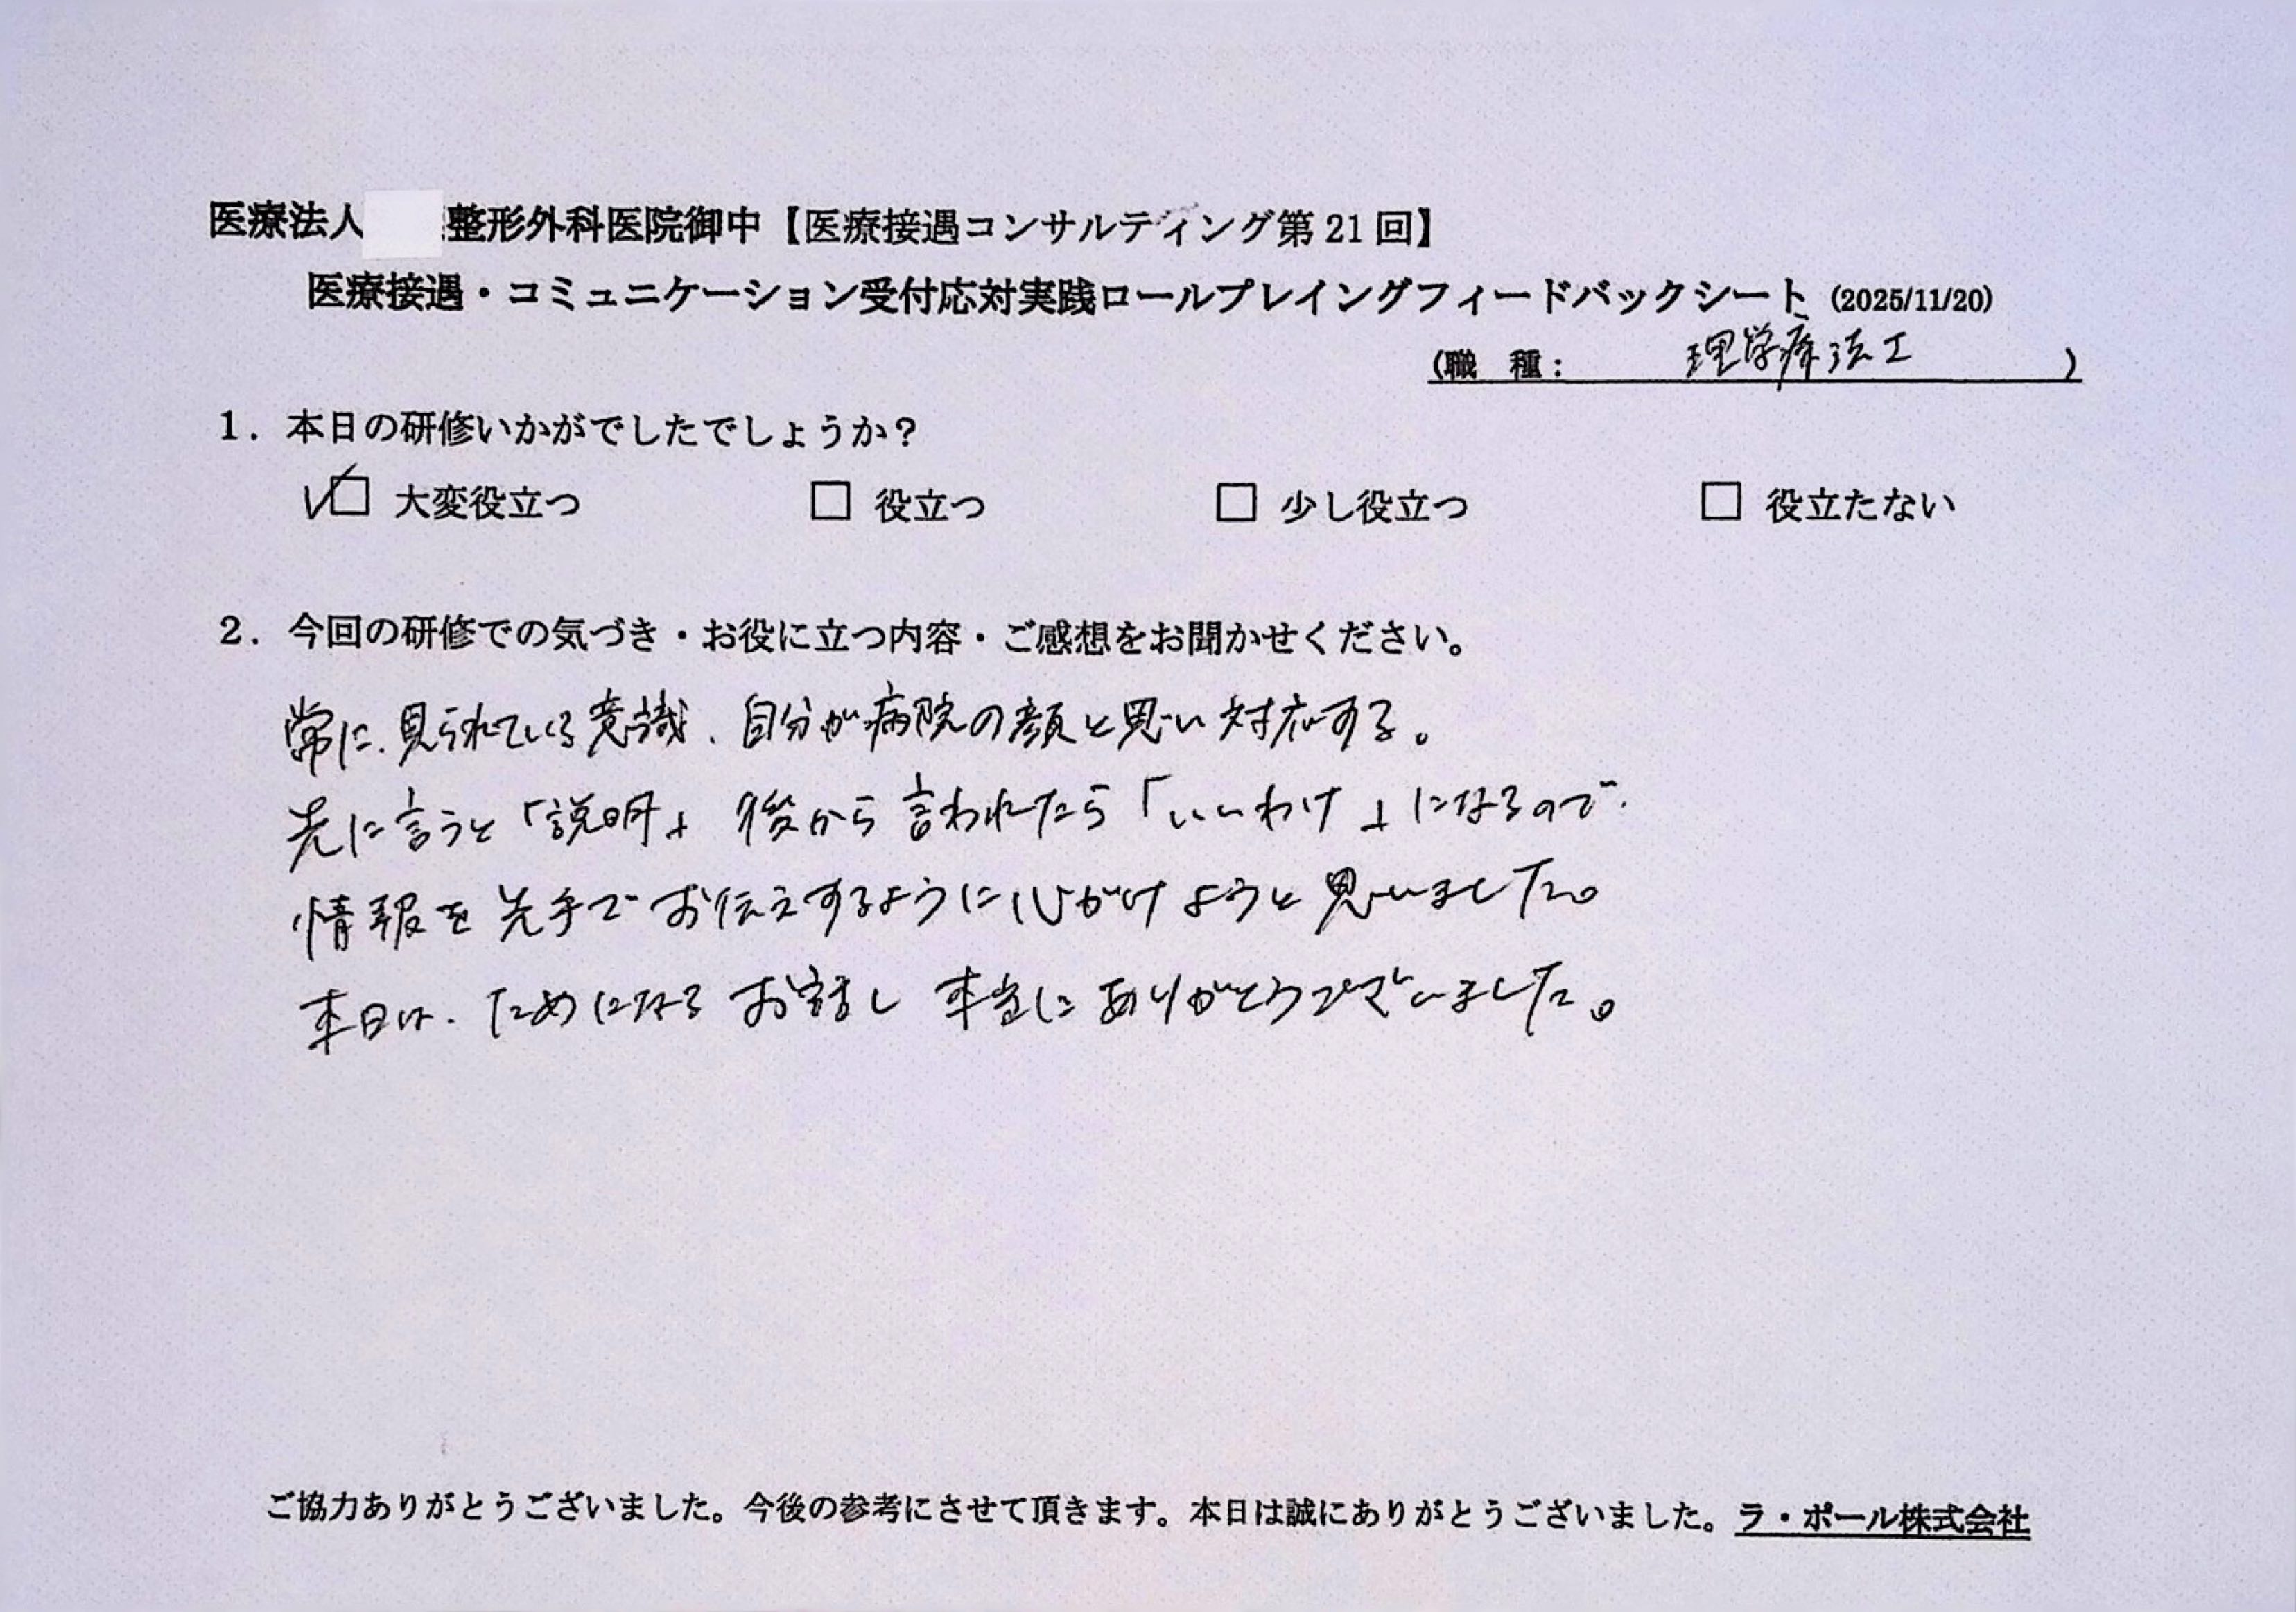 医療法人 整形外科医院御中【医療接遇コンサルティング第21回】
医療接遇・コミュニケーション受付応対実践ロールプレイングフィードバックシート (2025/11/20)
(職 種: 理学療法士 )
1. 本日の研修いかがでしたでしょうか？
☑ 大変役立つ □ 役立つ □ 少し役立つ □ 役立たない
2. 今回の研修での気づき・お役に立つ内容・ご感想をお聞かせください。
常に、見られている意識、自分が病院の顔と思い対応する。
先に言うと「説明」 後から言われたら「いいわけ」になるので、
情報を先手でお伝えするように心がけようと思いました。
本日は、ためになるお話し 本当にありがとうございました。
ご協力ありがとうございました。今後の参考にさせて頂きます。本日は誠にありがとうございました。ラ・ポール株式会社